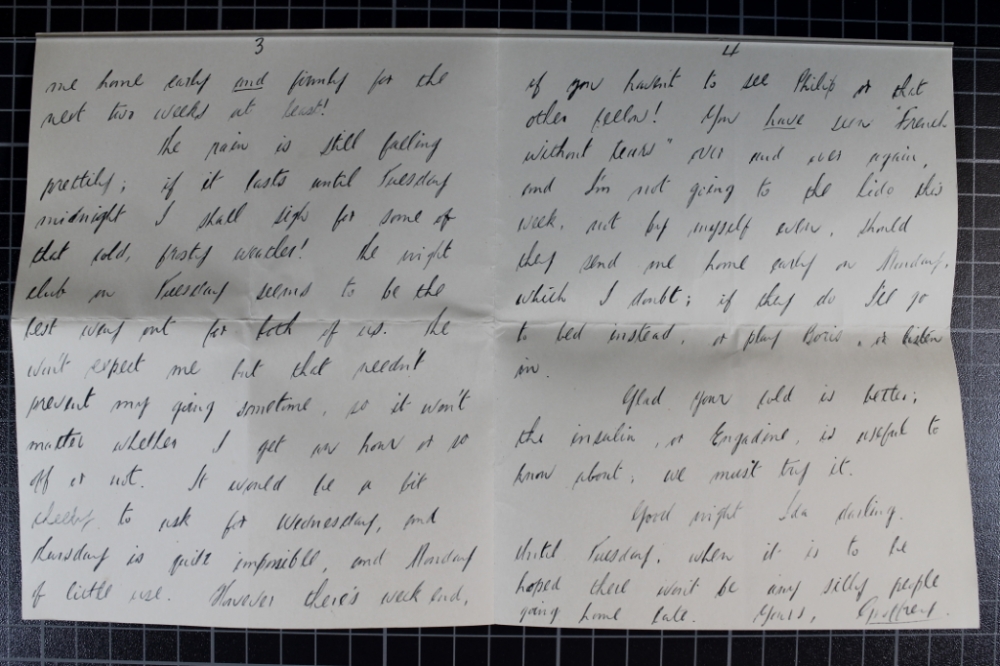 3
me home early and firmly for the
next two weeks at least!
The rain is still falling
prettily; if it lasts until Tuesday
midnight I shall sigh for some of
that cold, frosty weather! The night
club on Tuesday seems to be the
best way out for both of us. The
won't expect me but that needn't
prevent my going sometime, so it won't
matter whether I get an hour or so
off or not. It would be a bit
cheeky to ask for Wednesday, and
Thursday is quite impossible, and Monday
of little use. However there's week end,
4
if you haven't to see Philip or that
other fellow! You have seen "French
without tears" over and over again,
and I'm not going to the Lido this
week, not by myself even, should
they send me home early on Monday,
which I doubt; if they do I'll go
to bed instead, or play Boris, or listen
in.
Glad your cold is better;
the insulin, or Engadine, is useful to
know about; we must try it.
Good night Ida darling.
Until Tuesday, when it is to be
hoped there won't be any silly people
going home late. Yours, Godfrey.